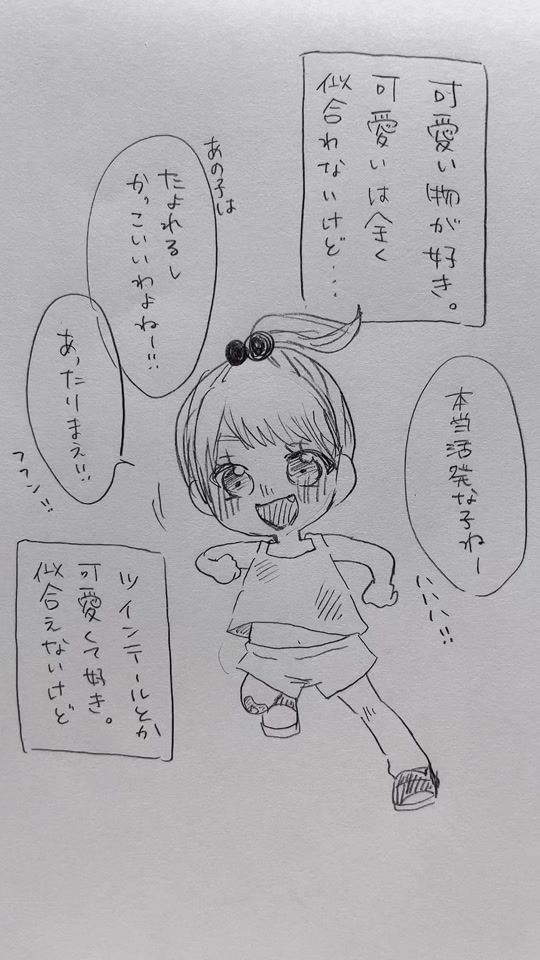 可愛い物が好き。
可愛いは全く
似合わないけど…
あの子は
たよれるし
かっこいいわよねー!!
あったりまえ!!
フフン!!
本当活発な子ねー
いいい!!
ツインテールとか
可愛くて好き。
似合えないけど